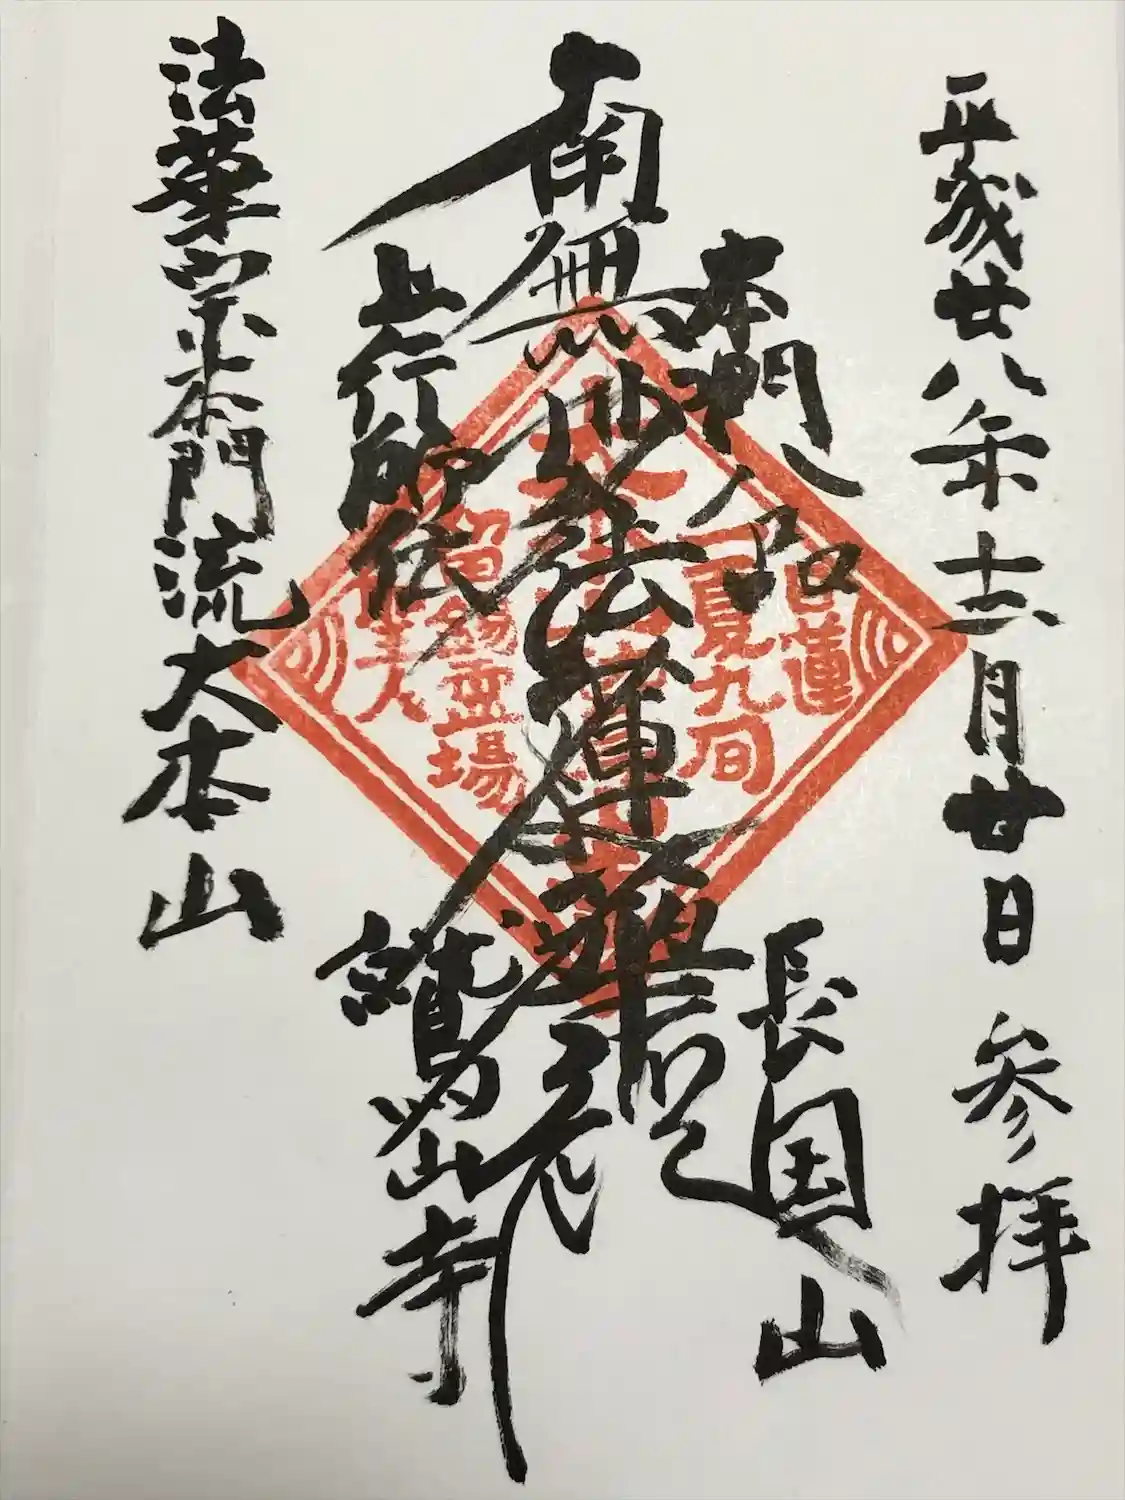 平成廿八年十二月廿日 参拝
本門八品
上行所伝
南無妙法蓮華経
長国山
鷲山寺
法華宗本門流大本山
日蓮
一夏九旬
留錫霊場